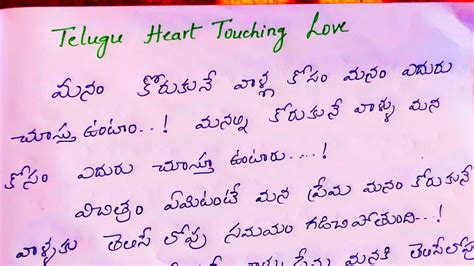 Telugu Heart Touching Love
మనం కోరుకునే వాళ్ల కోసం మనం ఎదురు
చూస్తు ఉంటాం...! మనల్ని కోరుకునే వాళ్ళు మన
కోసం ఎదురు చూస్తూ ఉంటారు....!
విచిత్రం ఏమిటంటే మన ప్రేమ మనం కోరుకునే
వాళ్ళకు తెలిసే లోపు సమయం గడిచిపోతుంది...!
ప్రేమ మనకి తెలిసేలోపు